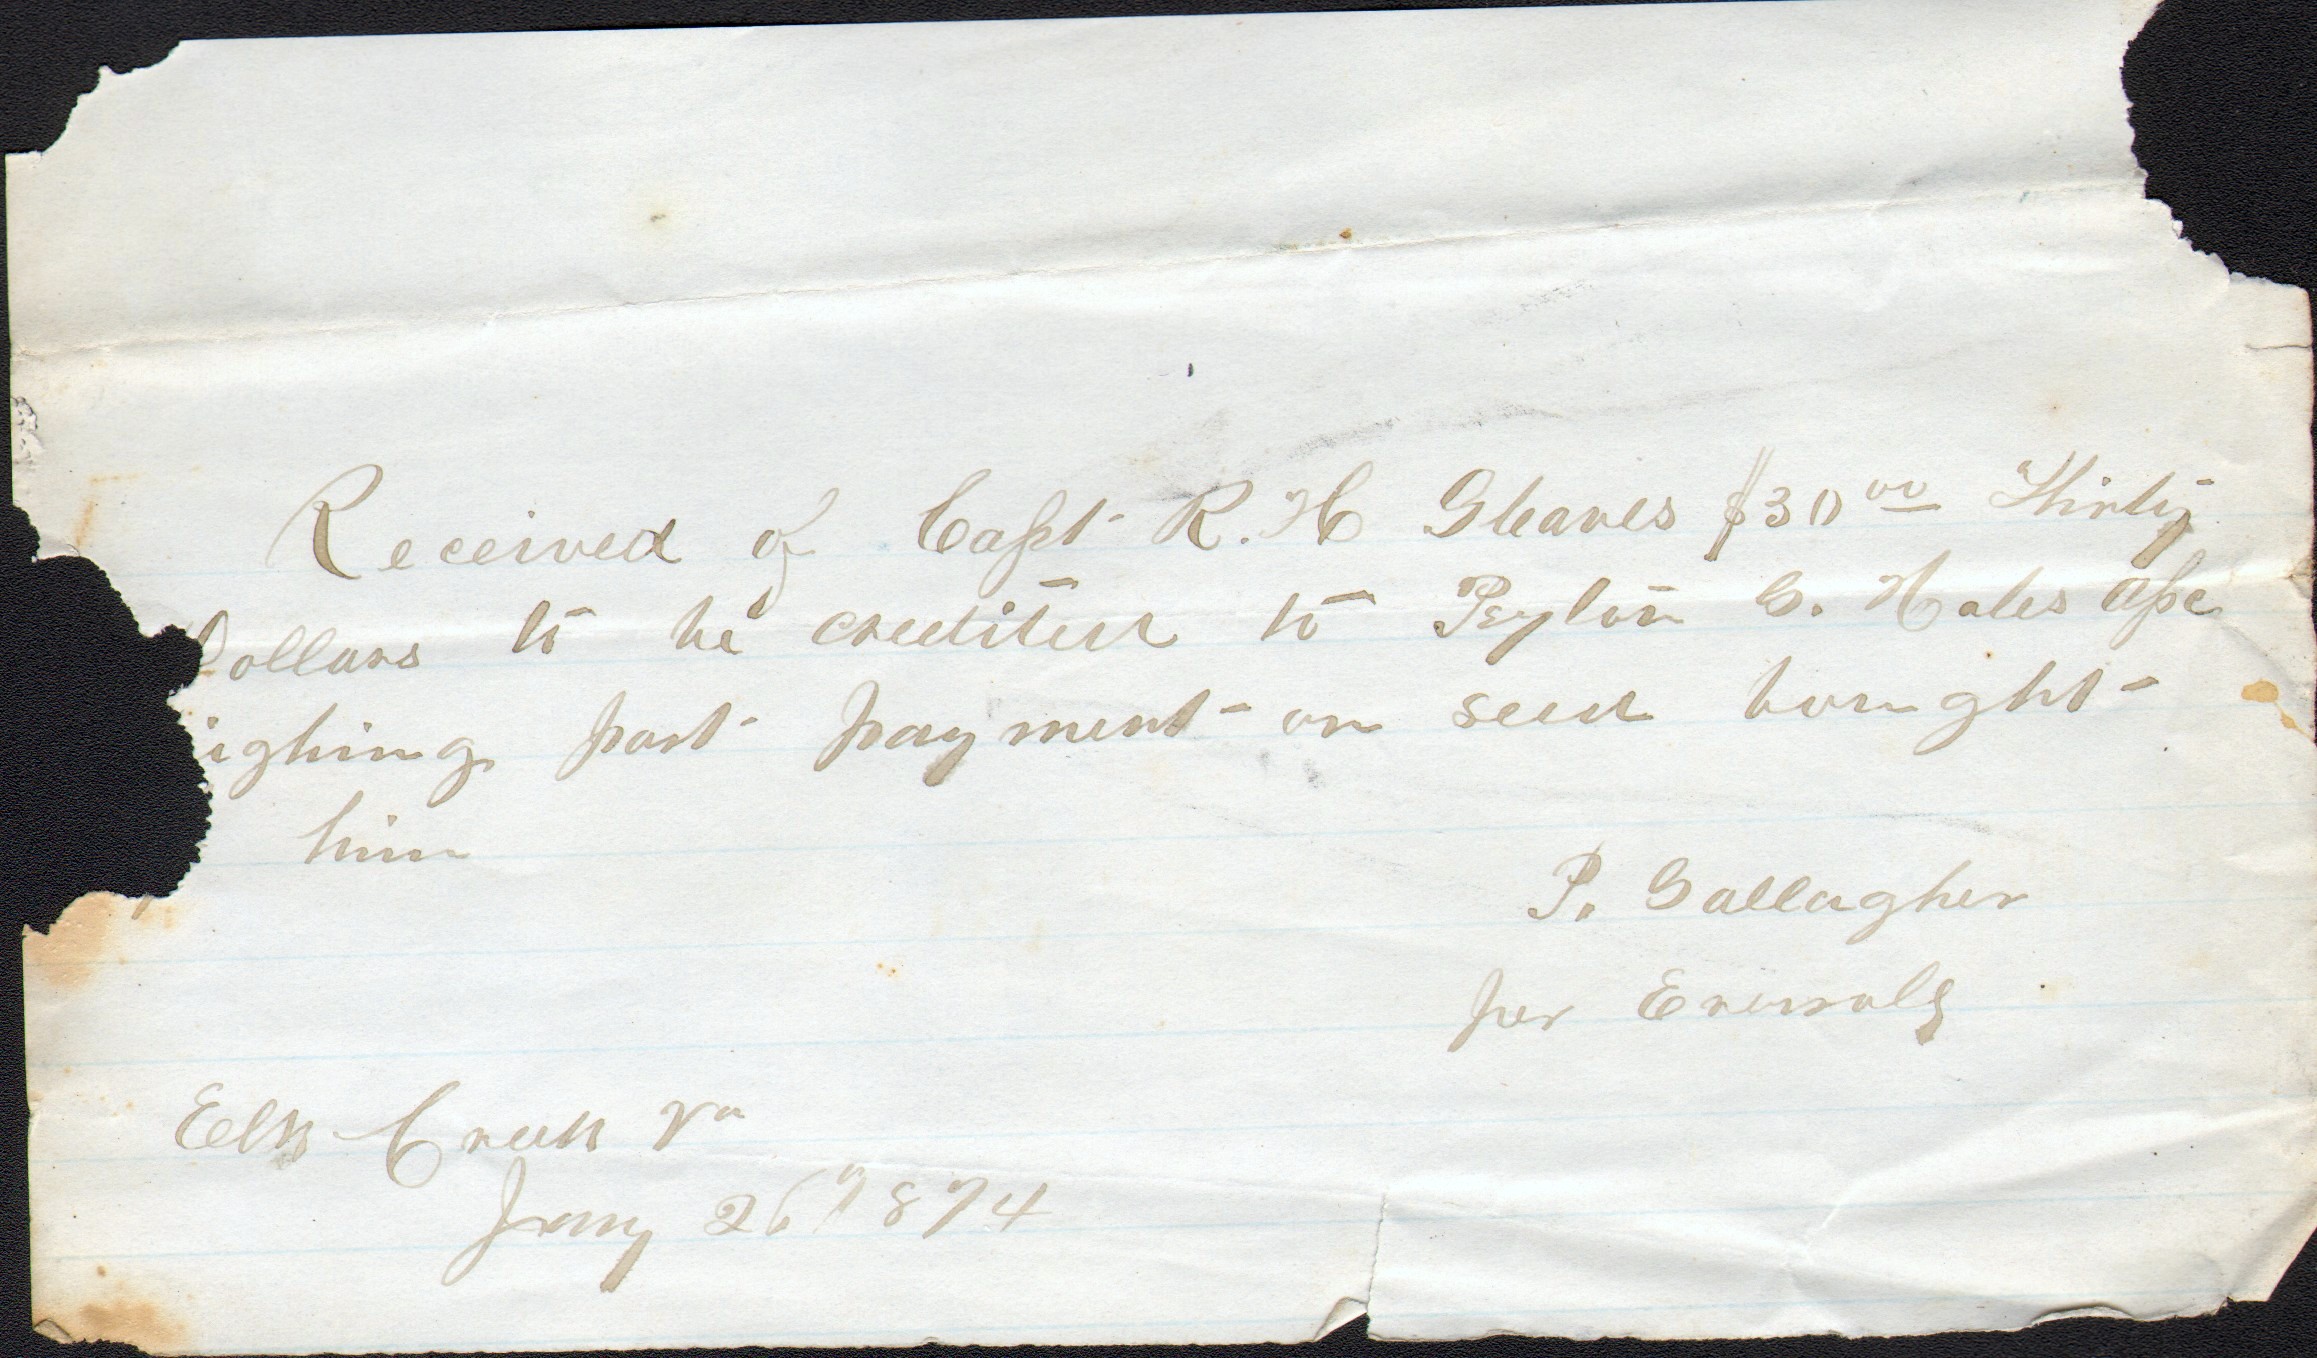 Received of Capt R. H Gleaves $30 00 Thirty
Dollars to be credited to Peyton G. Hales
ighing part payment on seed bought
him
P. Gallagher
per
Elk Creek Va
Jany 26 1874